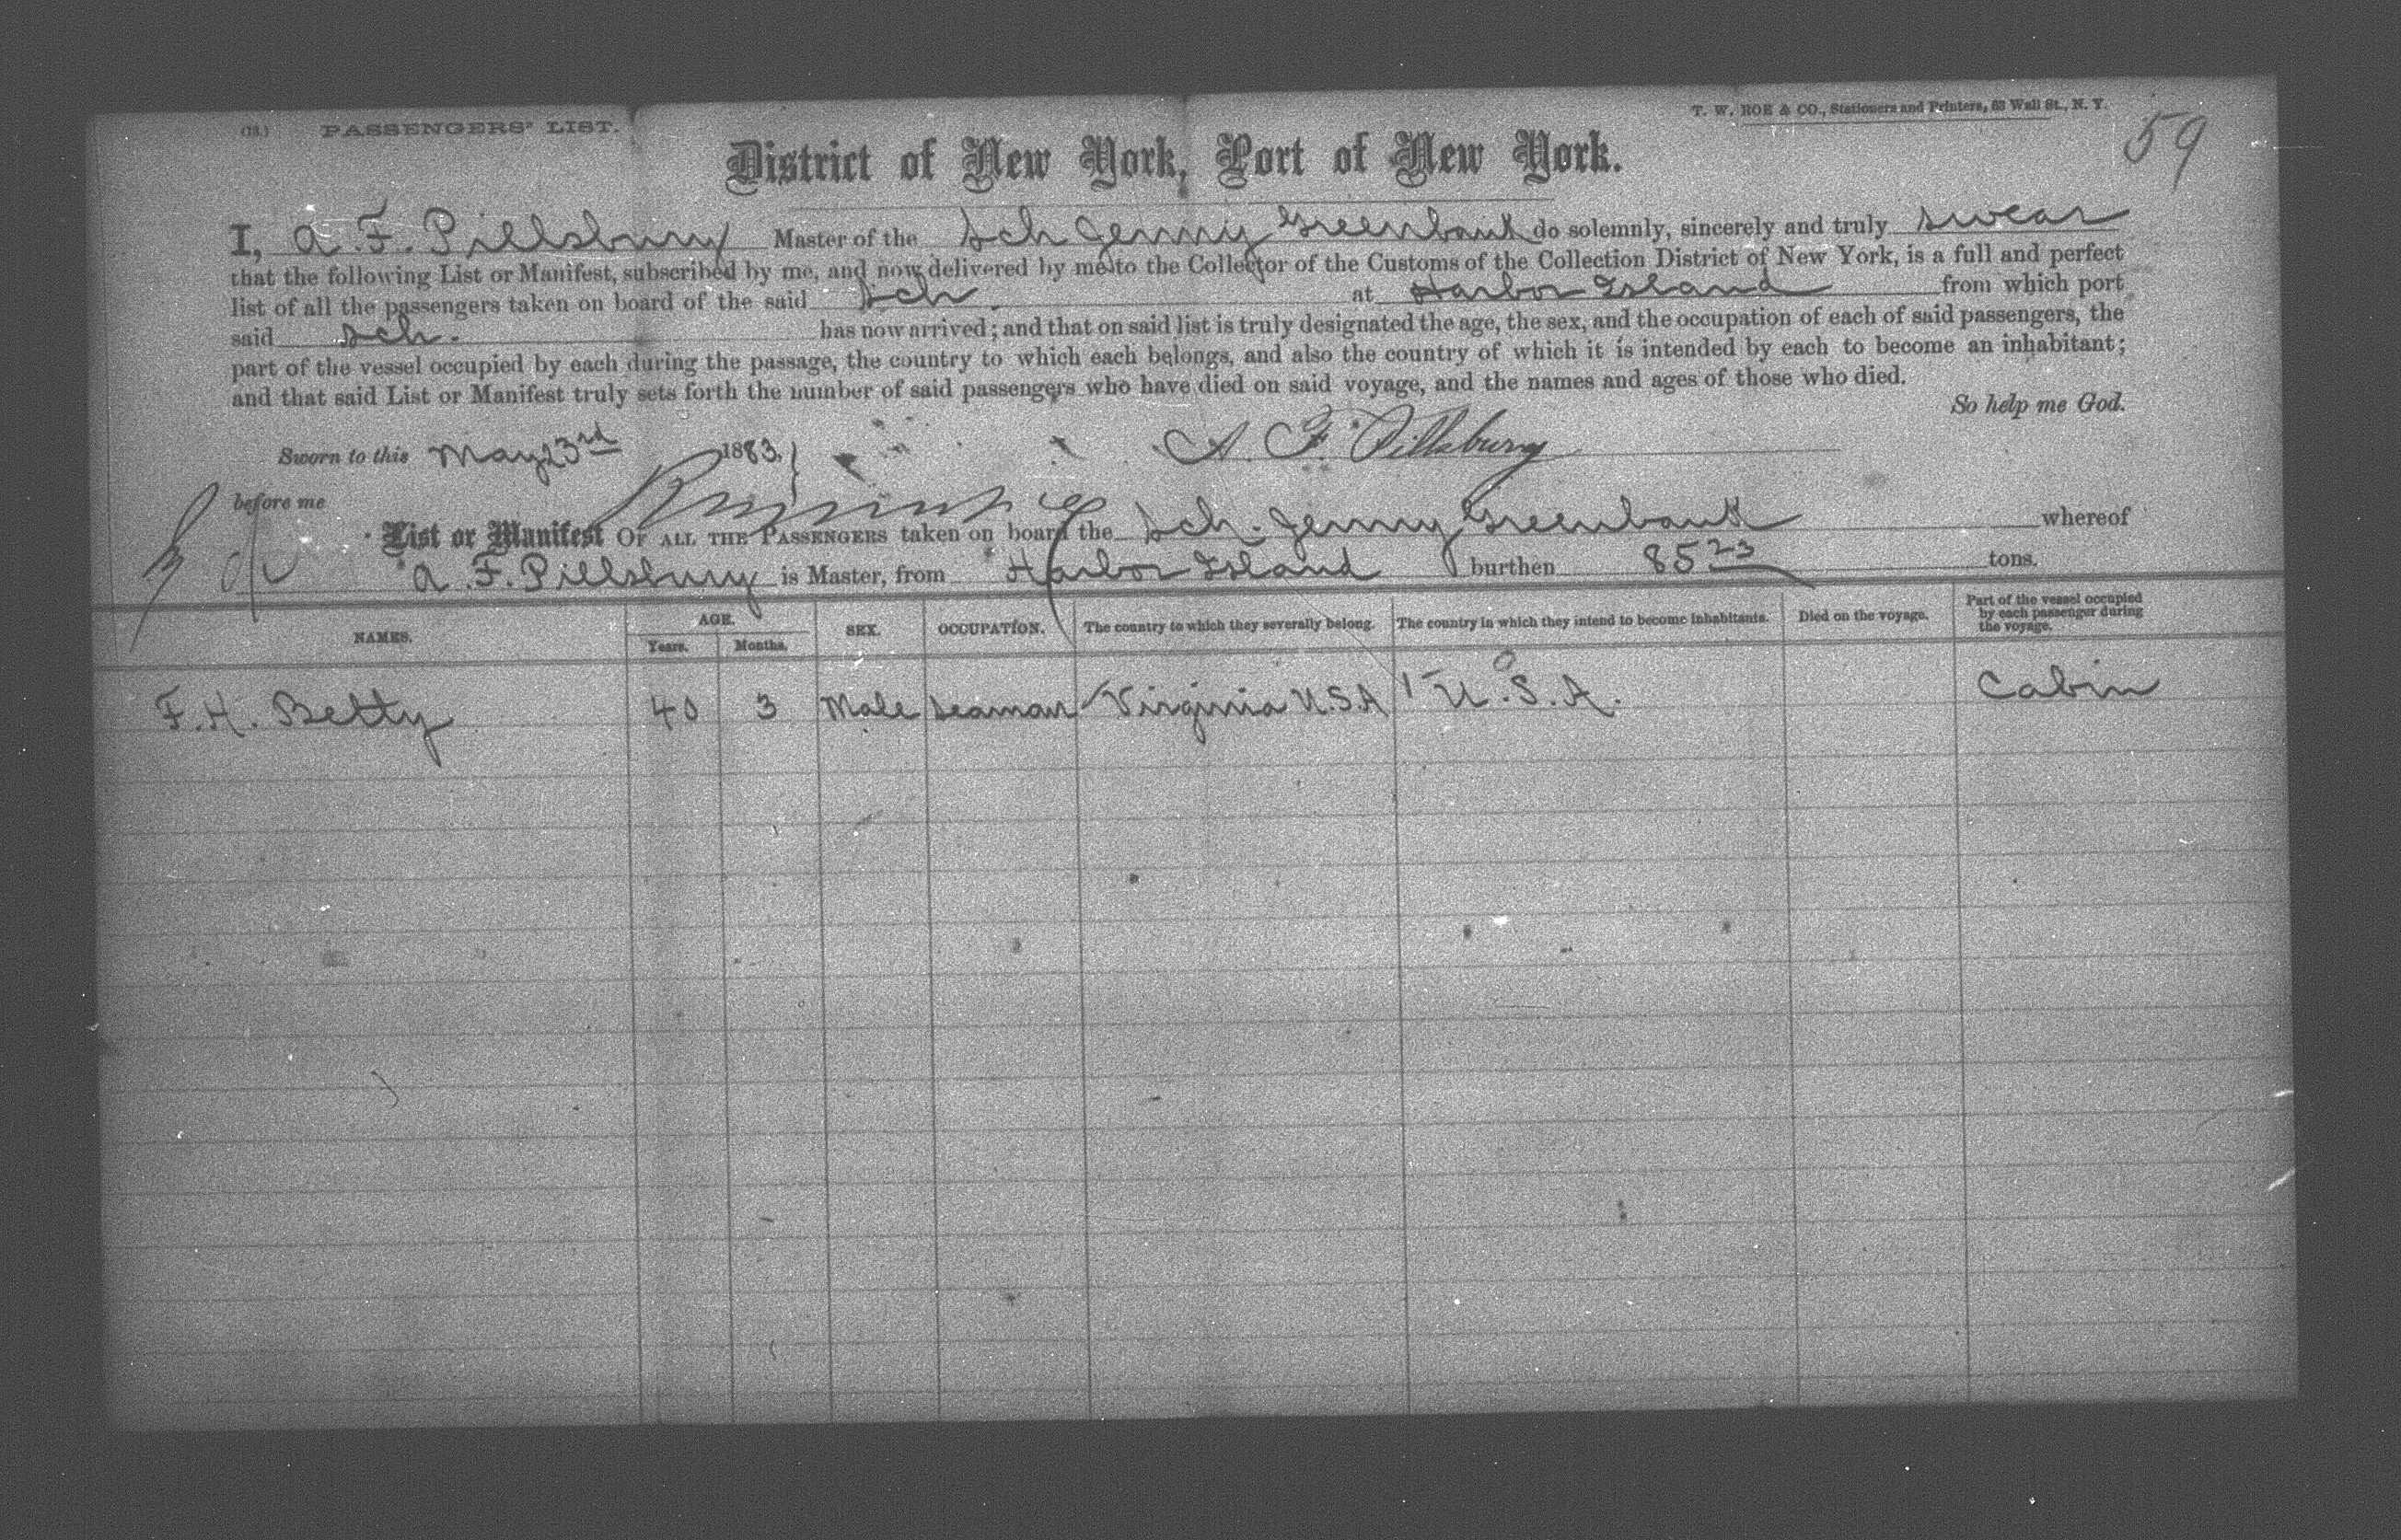 (18.) PASSENGERS' LIST.
T. W. ROE & CO., Stationers and Printers, 63 Wall St., N. Y.
59
District of New York, Port of New York.
I, A. F. Pillsbury Master of the Sch Jenny Greenbank do solemnly, sincerely and truly swear
that the following List or Manifest, subscribed by me, and now delivered by me to the Collector of the Customs of the Collection District of New York, is a full and perfect
list of all the passengers taken on board of the said Sch at Harbor Island from which port
said Sch. has now arrived; and that on said list is truly designated the age, the sex, and the occupation of each of said passengers, the
part of the vessel occupied by each during the passage, the country to which each belongs, and also the country of which it is intended by each to become an inhabitant;
and that said List or Manifest truly sets forth the number of said passengers who have died on said voyage, and the names and ages of those who died.
So help me God.
Sworn to this May 23rd 1883. A. F. Pillsbury
before me
List or Manifest OF ALL THE PASSENGERS taken on board the Sch. Jenny Greenbank whereof
A. F. Pillsbury is Master, from Harbor Island burthen 85 23 tons.
NAMES. AGE. Years. Months. SEX. OCCUPATION. The country to which they severally belong. The country in which they intend to become inhabitants. Died on the voyage. Part of the vessel occupied by each passenger during the voyage.
F. H. Betty 40 3 Male Seaman Virginia U.S.A U.S.A. Cabin